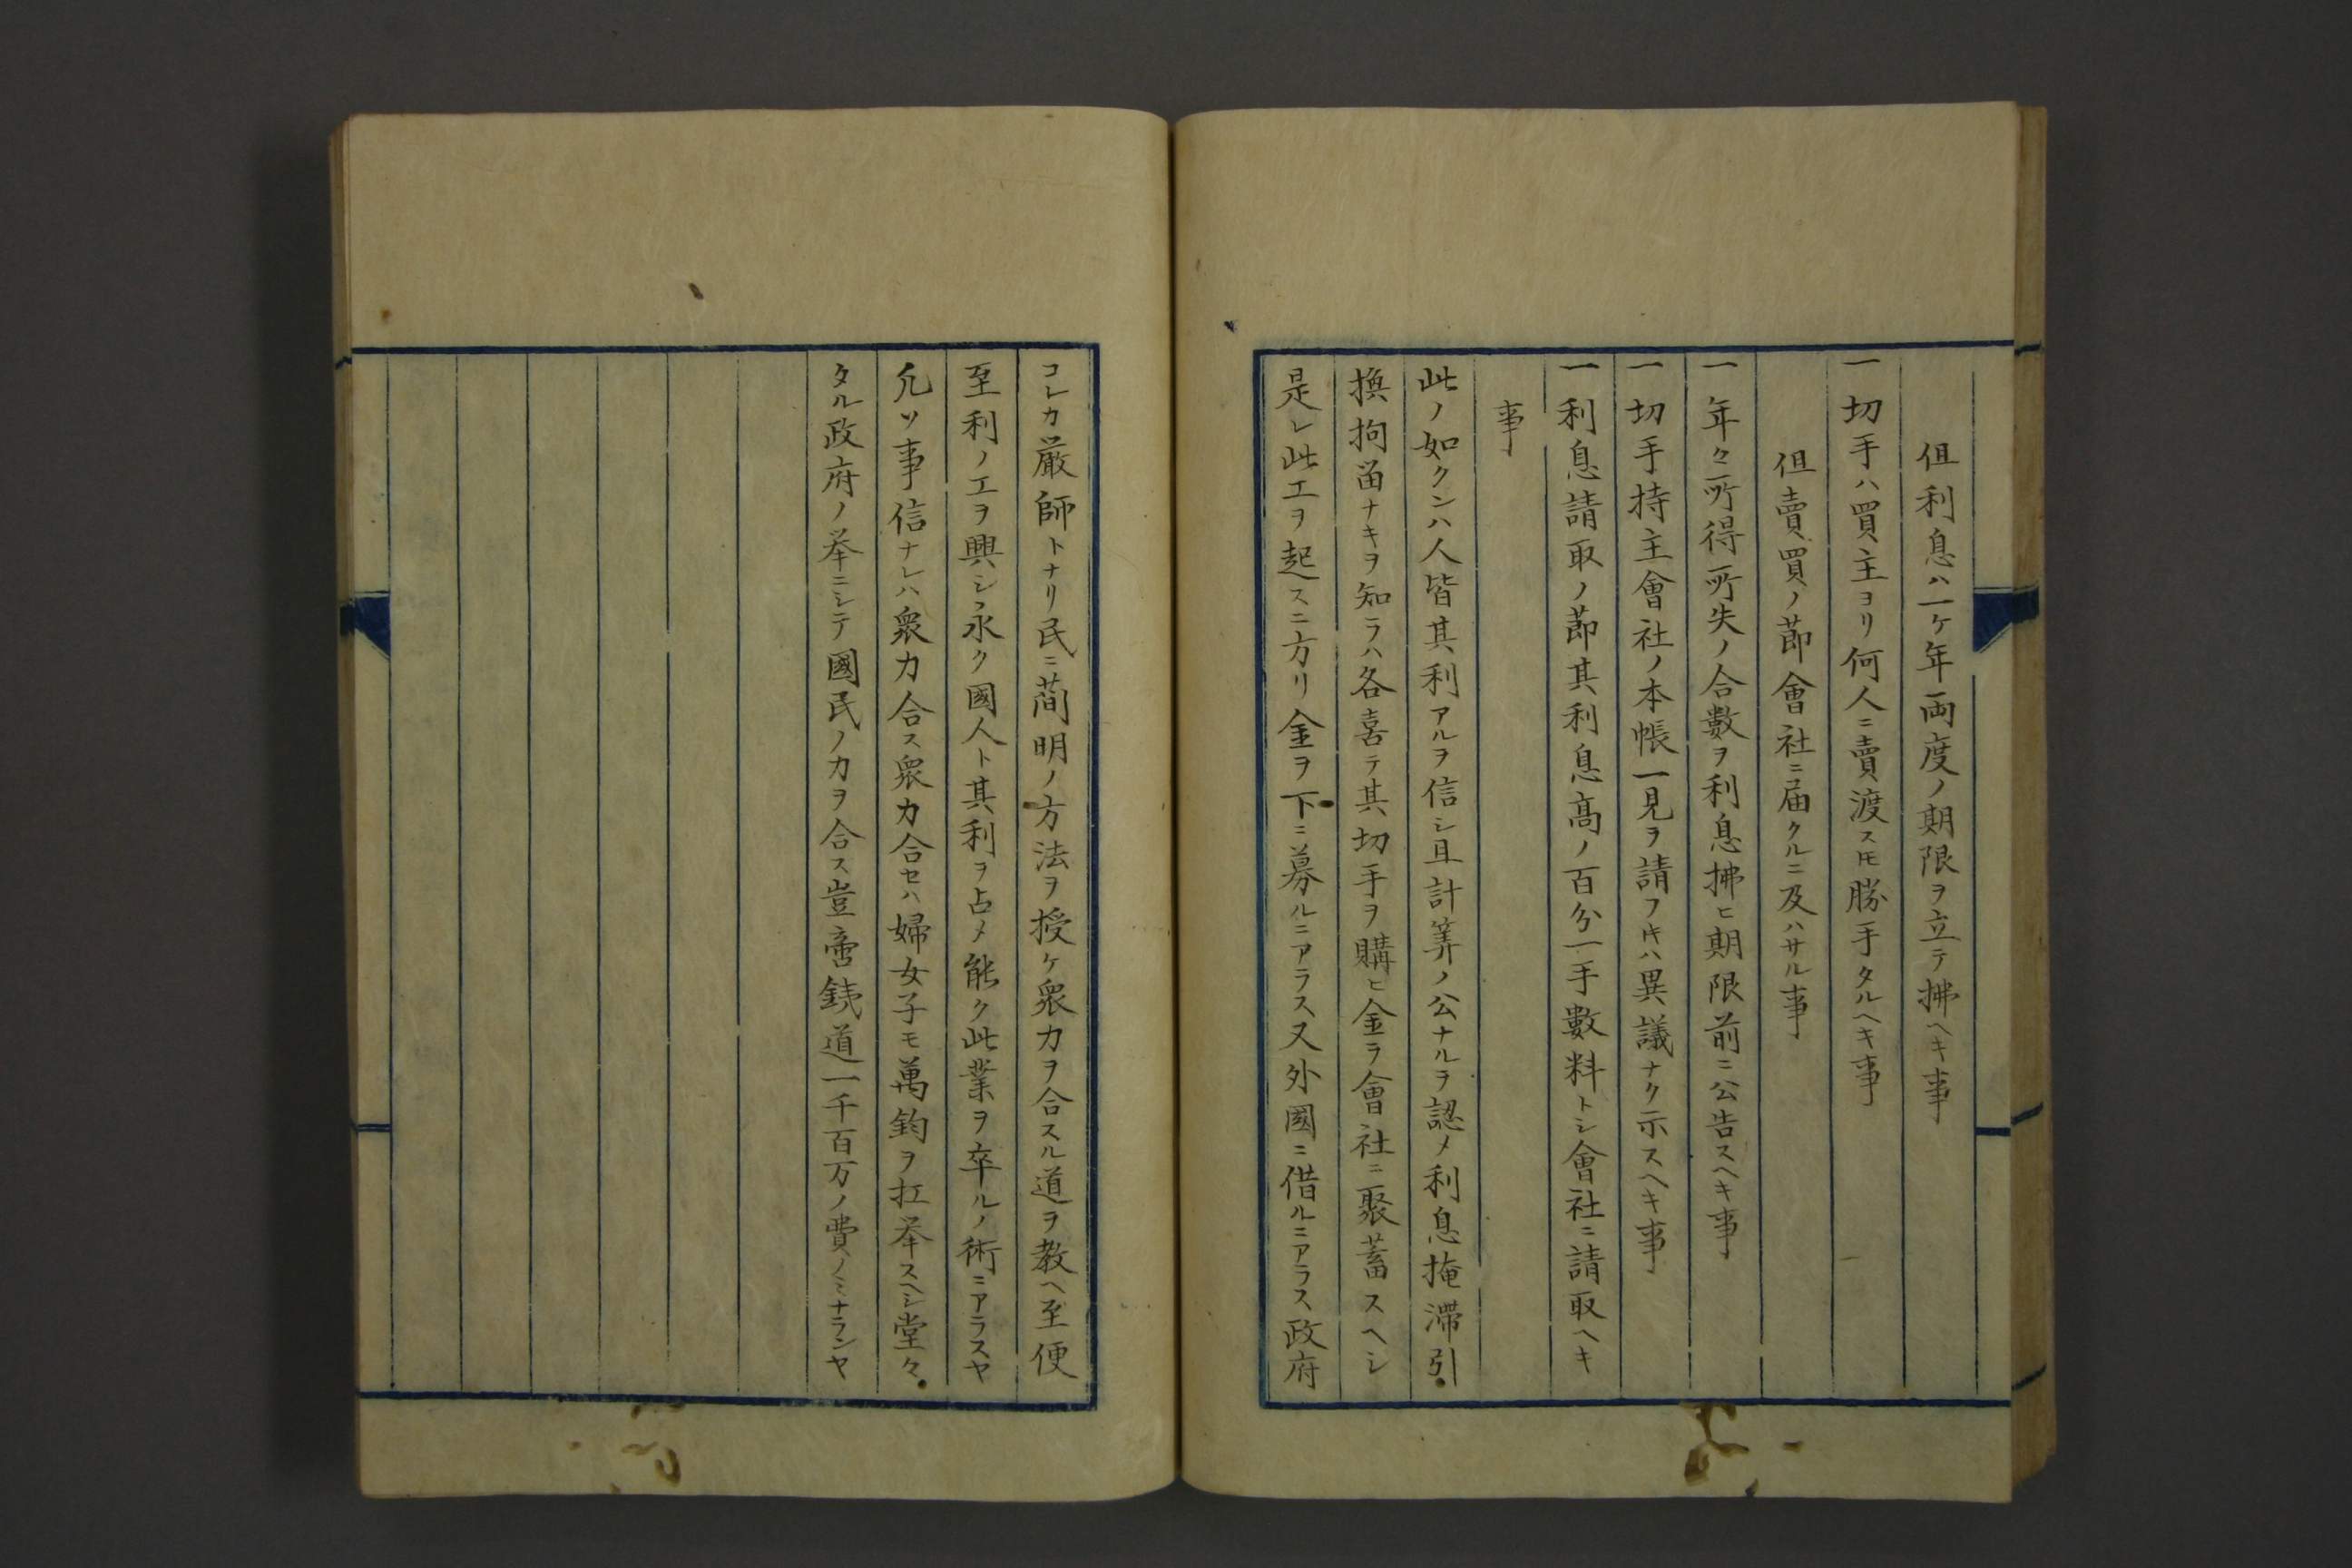 但利息ハ一ケ年両度ノ期限ヲ立テ拂ヘキ事
一切手ハ買主ヨリ何人ニ賣渡スㇳモ勝手タルヘキ事
但賣買ノ節會社ニ届クルニ及ハサル事
一年々所得所失ノ合數ヲ利息拂ヒ期限前ニ公告スヘキ事
一切手持主會社ノ本帳一見ヲ請フ片ハ異議ナク示スヘキ事
一利息請取ノ節其利息髙ノ百分一手數料トシ會社ニ請取ヘキ
事
此ノ如クンハ人皆其利アルヲ信シ且計筭ノ公ナルヲ認メ利息掩滞引
換拘畄ナキヲ知ラハ各喜テ其切手ヲ購ヒ金ヲ會社ニ聚蓄スヘシ
是レ此工ヲ起スニ方リ金ヲ下ニ募ルニアラス又外國ニ借ルニアラス政府
コレカ厳師トナリ民ニ蕳明ノ方法ヲ授ケ衆力ヲ合スル道ヲ教ヘ至便
至利ノ工ヲ興シ永ク國人ト其利ヲ占メ能ク此業ヲ卒ルノ術ニアラスヤ
凢ソ事信ナレハ衆力合ス衆力合セハ婦女子モ萬鈞ヲ扛挙スヘシ堂々
タル政府ノ挙ニシテ國民ノ力ヲ合ス豈啻銕道一千百万ノ費ノミナランヤ